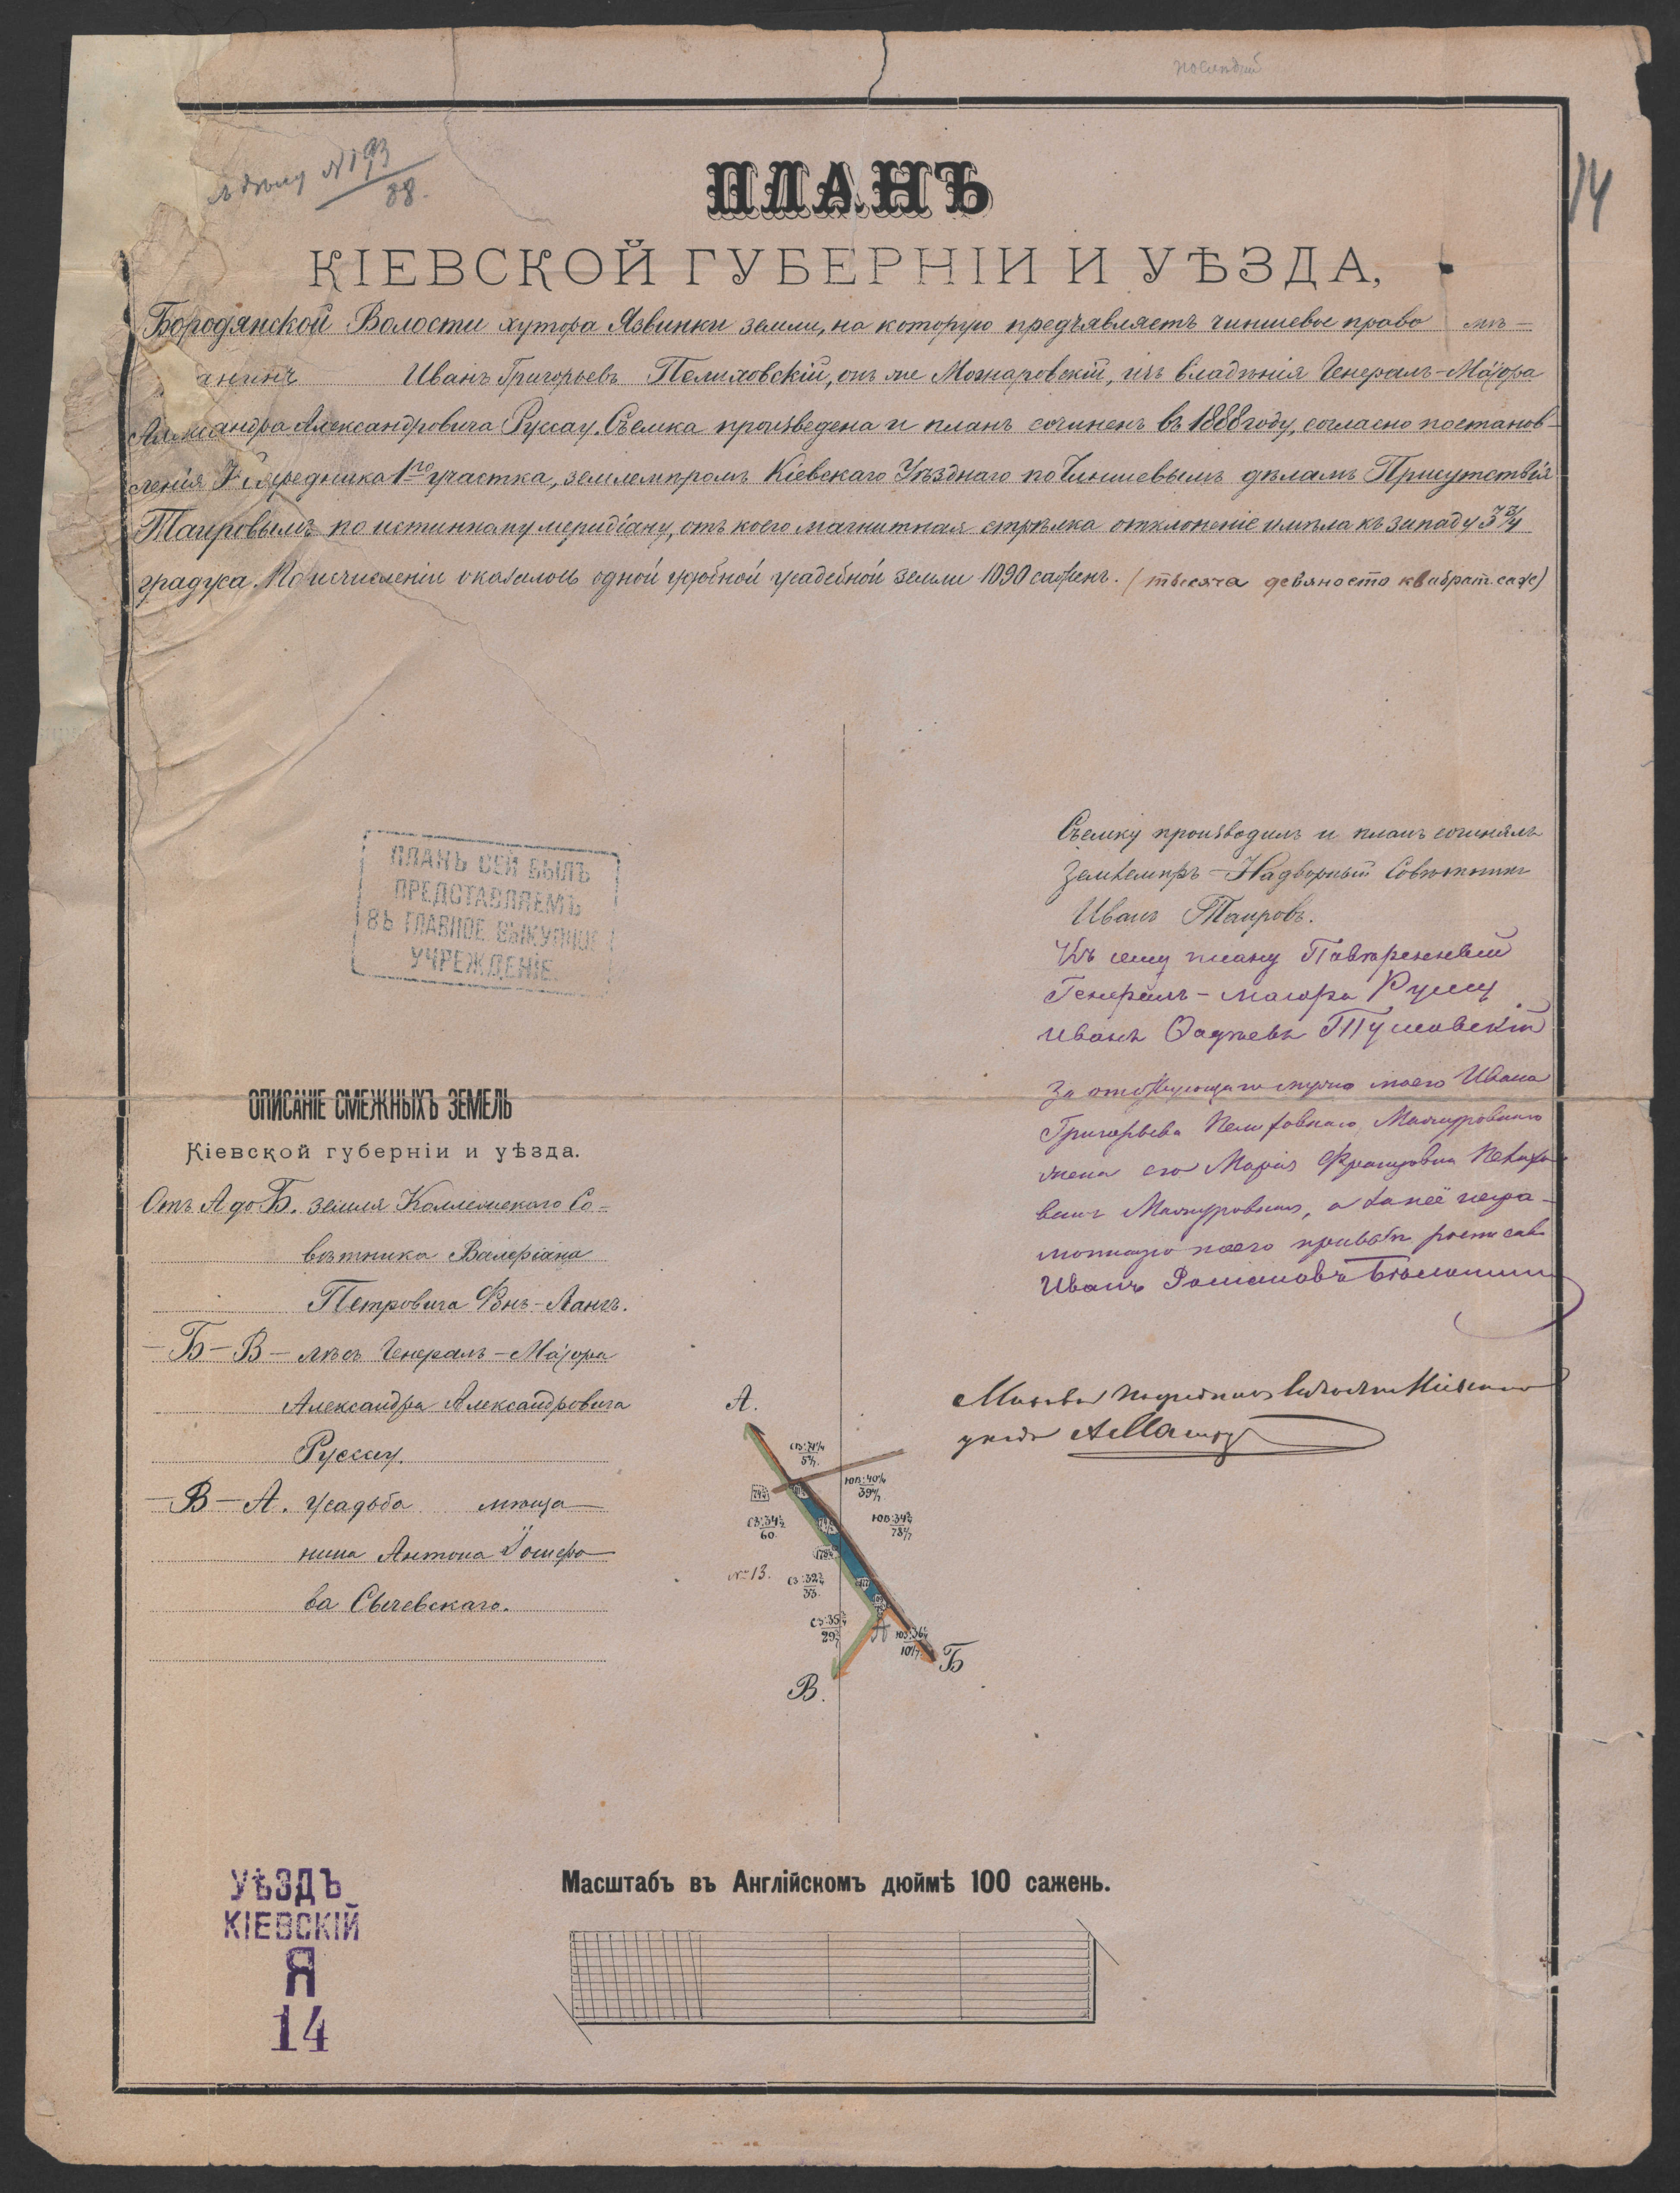 къ дѣлу №193/88.
14
ПЛАНЪ
КІЕВСКОЙ ГУБЕРНІИ И УѢЗДА,
Бородянской Волости хутора Язвинки земли, на которую предъявляетъ чиншевое право мѣ-
анинъ Иванъ Григорьевъ Пелиховскій, онъ жеМожаровскій, изъ владѣнія Генералъ-Маіора
Александра Александровича Руссау. Съемка произведена и планъ сочиненъ въ 1888 году, согласно постанов-
ленія средника 1го участка, землемѣромъ Кіевскаго Уѣзднаго по Чиншевымъ дѣламъ Присутствія
Таировымъ по истинному меридіану, отъ коего магнитная стрѣлка отклоненіе имѣла къ западу 3¾
градуса. По исчисленіи оказалось одной удобной усадебной земли 1090 сажень. (тысяча девяносто квадрат. саж)
ПЛАНЪ СЕЙ БЫЛЪ
ПРЕДСТАВЛЯЕМЪ
ВЪ ГЛАВНОЕ ВЫКУПНОЕ
УЧРЕЖДЕНІЕ
Съемку производилъ и планъ сочинялъ
Землемѣръ-Надворный Совѣтникъ
Иванъ Таировъ.
Къ сему плану Повѣренный
Генералъ-маіора Руссау
Иванъ Тушовскій
За мужа моего Ивана
Григорьева Пелиховскаго, Можаровскаго
жена его Марія Францовна Пелихо-
вская Можаровская, а за неё негра-
мотную по ея прозьбѣ росписался
Иванъ Романовъ
ОПИСАНІЕ СМЕЖНЫХЪ ЗЕМЕЛЬ
Кіевской губерніи и уѣзда.
Отъ А до Б. земля Коллежскаго Со-
вѣтника Валеріана
Петровича Фнъ-Лангъ.
-Б-В- лѣсъ Генералъ-Маіора
Александра Александровича
Руссау.
-В-А. усадьба мѣща-
нина Антона
ва Сычевскаго.
Мировой Посредникъ
А.
СЗ:34½
60.
ЮВ:34¾
№ 13.
СЗ:32¾
33.
А
Б
В.
УѢЗДЪ
КІЕВСКІЙ
Я
14
Масштабъ въ Англійскомъ дюймѣ 100 сажень.